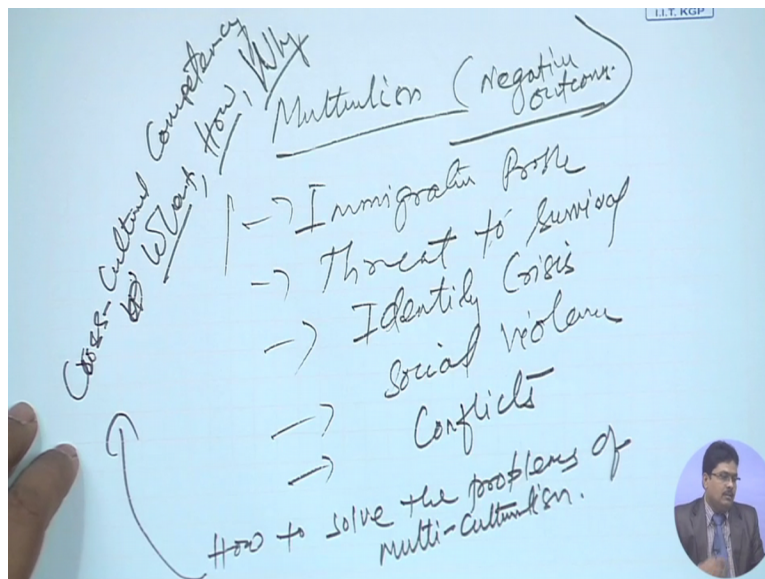 I.I.T. KGP
Cross-Cultural Competency
What, How, Why
Multulism (Negative
outcoms.)
-> Immigratin Proble
-> Threat to Survival
-> Identity Crisis
Social violence
-> Conflicts
->
How to solve the problems of
multi-culturalism.